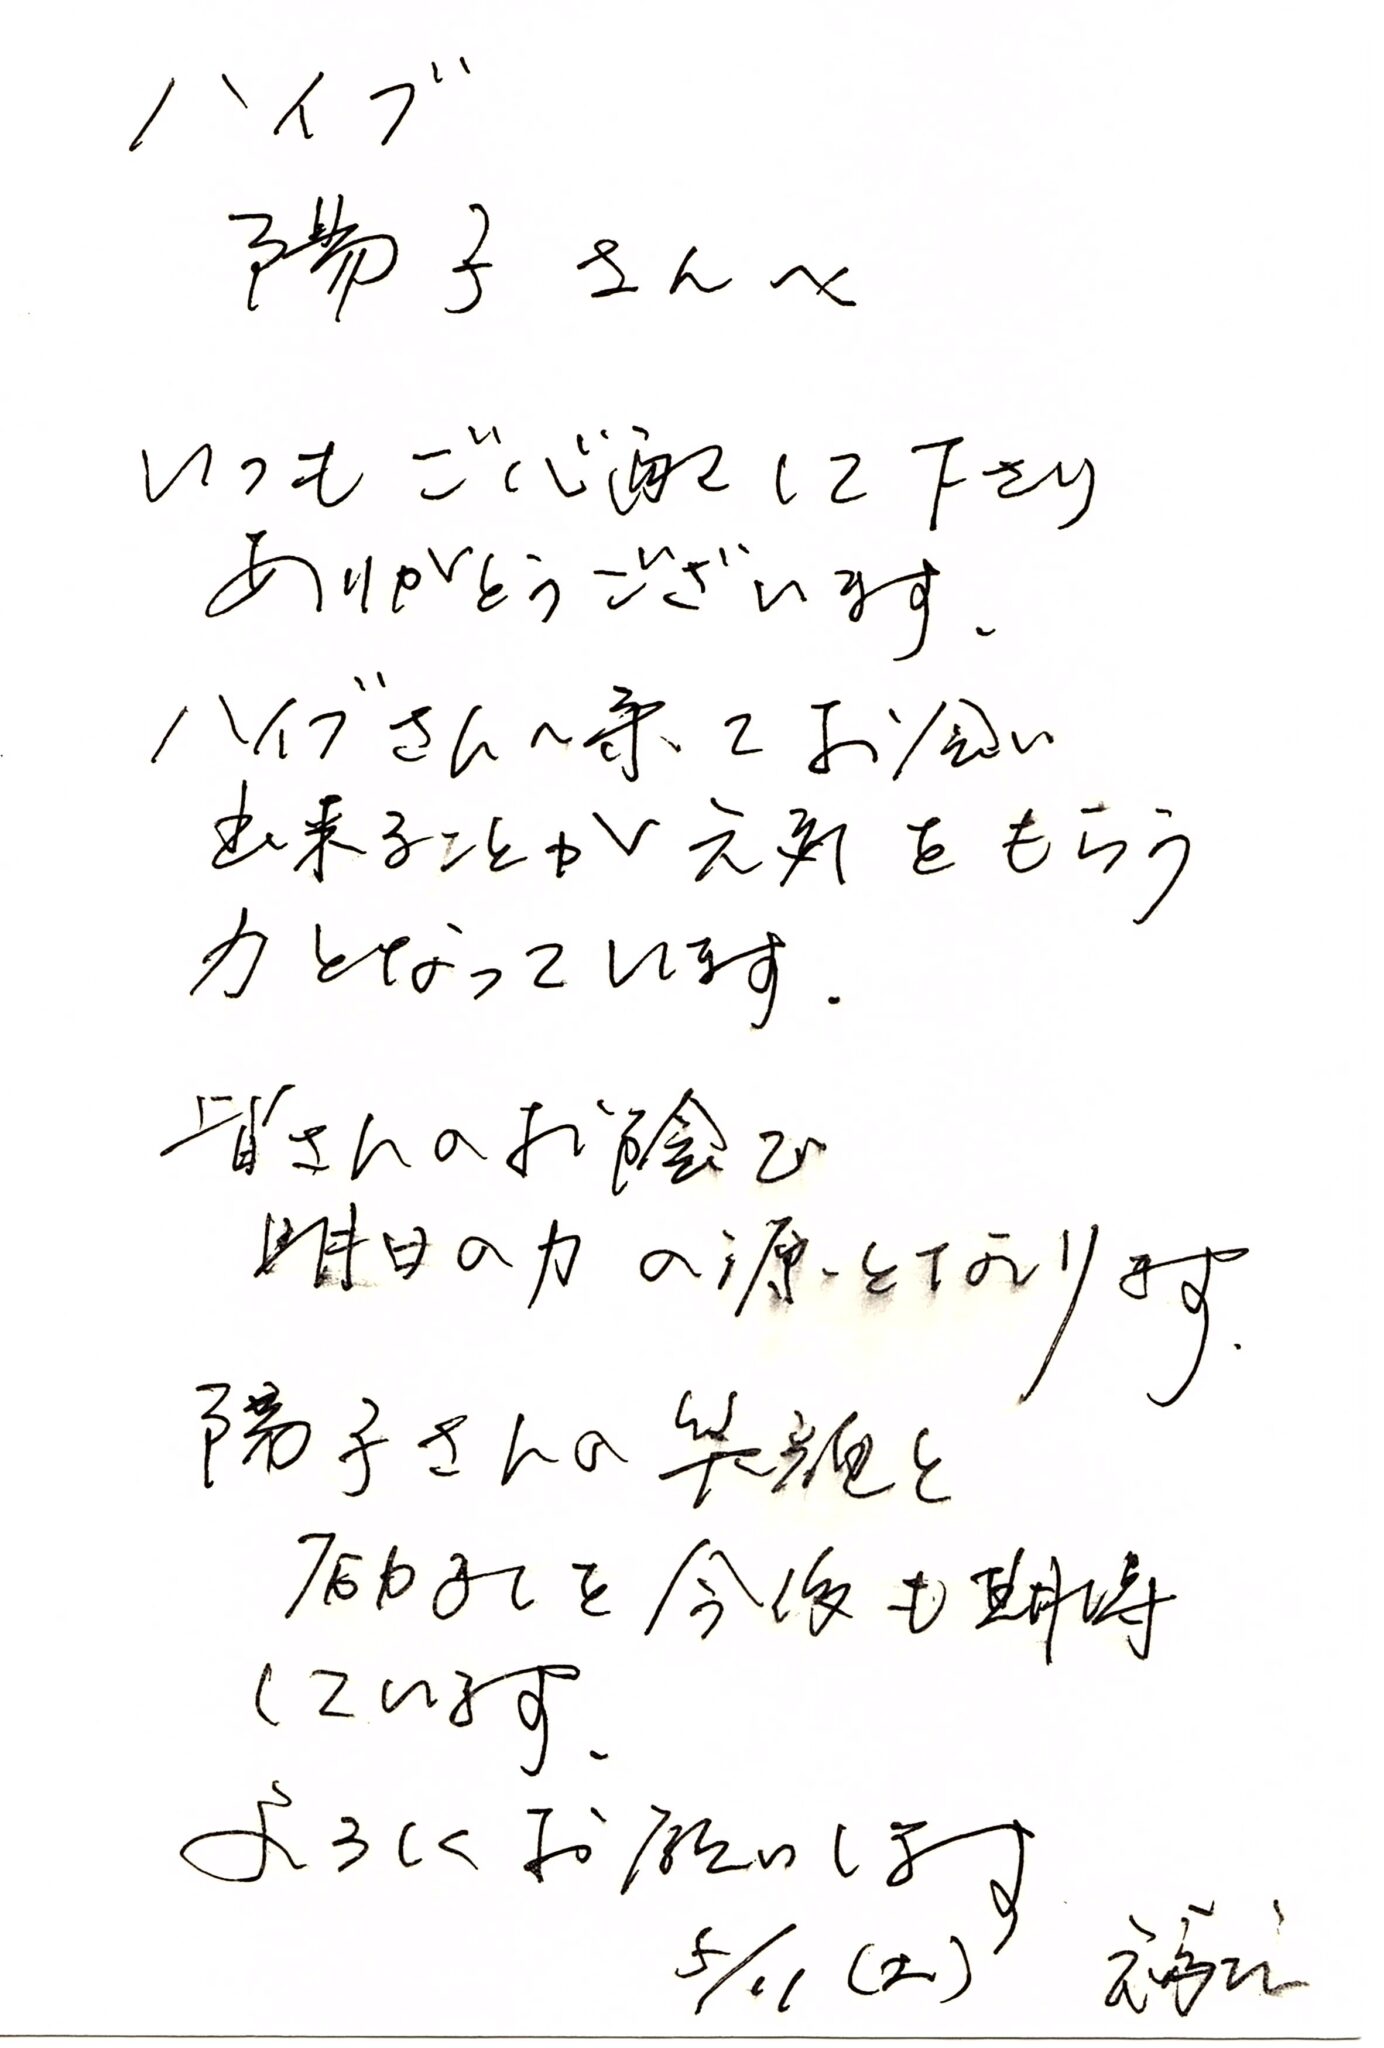 ハイブ
陽子さんへ
いつもご心配して下さり
ありがとうございます.
ハイブさんへ来てお会い
出来ることが元気をもらう
力となっています.
皆さんのお陰で
明日の力の源となります.
陽子さんの笑顔と
励ましを今後も期待
しています.
よろしくお願いします
5/11(土)